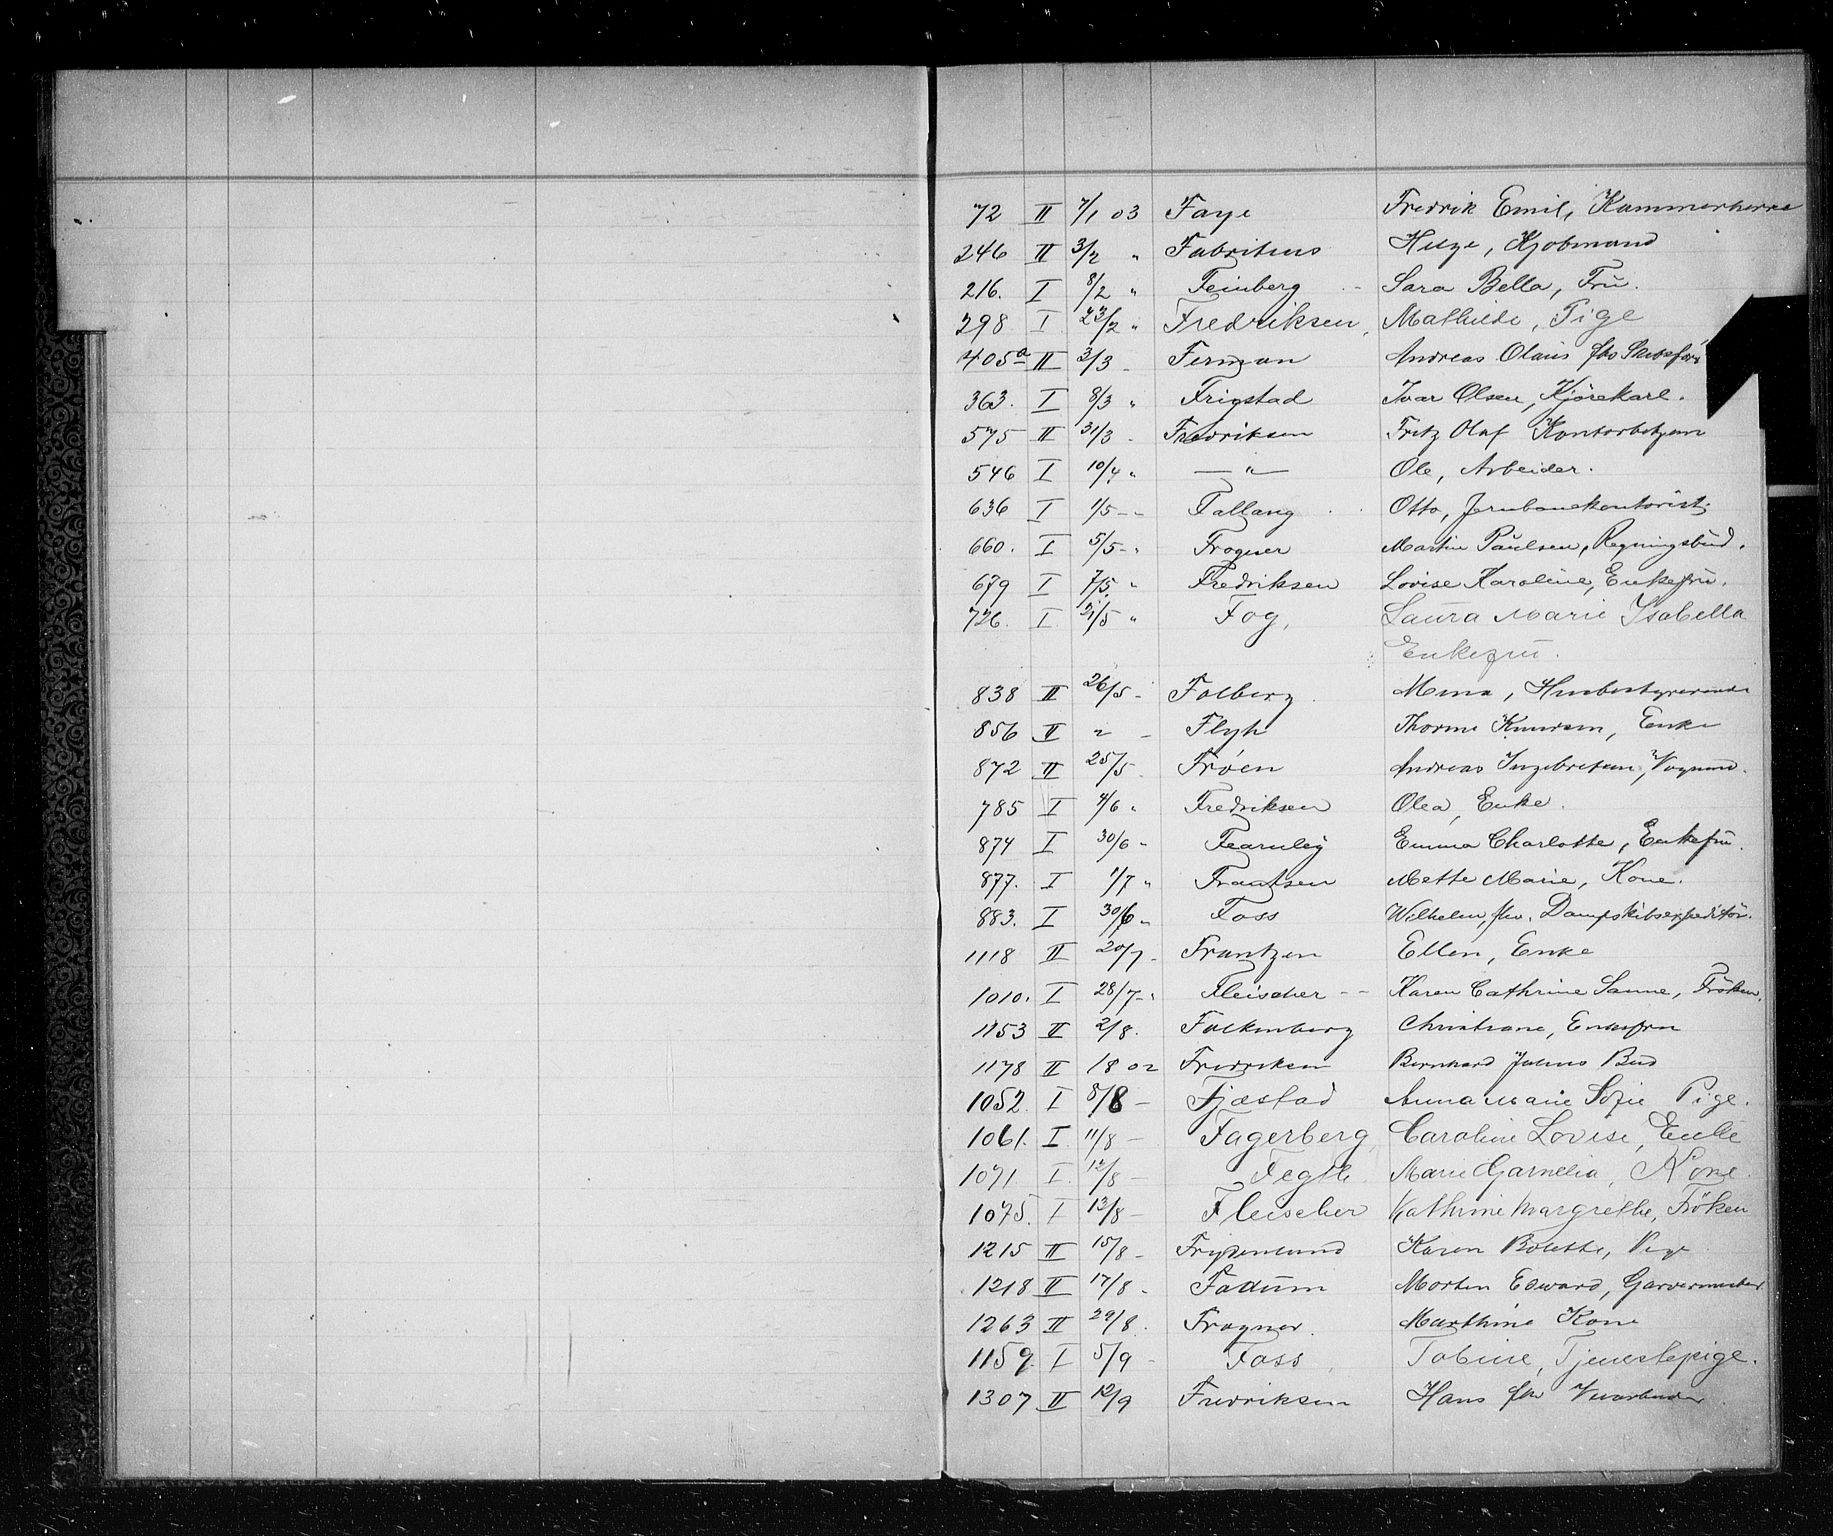 72 II 7/1 03 Faye Fredrik Emil, Kammerherre
246 II 3/2 " Fabritius Helge, Kjøbmand
216. I 8/2 " Feinberg Sara Bella, Fru.
298 I 23/2 " Fredriksen, Mathilde, Pige
405a II 3/3 - Ferman Andreas Olaus fhv
363. I 8/3 " Frigstad Ivar Olsen, Kjørekarl.
575 II 31/3 - Fredriksen Fritz Olaf Kontorbetjen
546 I 10/4 " — " — Ole, Arbeider.
636 I 1/5 - - Fallang Otto, Jernbanekontorist.
660. I 5/5 - " Frogner Martin Paulsen, Regningsbud.
679 I 7/5. " Fredriksen Lovise Karoline, Enkefru.
726. I 21/5 " Fog, Laura Marie Isabella
Enkefru.
838 II 26/5 - Falberg Mina, Husbestyrerinde
856 II " - Flyh Thorine Knudsen, Enke
872 II 25/5. Frøen Andreas Ingebretsen, Vognmd.
785 I 4/6 " Fredriksen Olea, Enke.
874 I 30/6 " Fearnley Emma Charlotte, Enkefru.
877. I 1/7 " Frantsen Mette Marie, Kone.
883. I 30/6 " Foss Wilhelm, fhv. Dampskibsexpeditør.
1118 II 20/7 - Frantzen Ellen, Enke
1010. I 28/7 - " Fleischer - - Karen Cathrine Sanne, Frøken.
1153 II 2/8. Falkenberg Christiane, Enkefru
1178 II 18 02 Fredriksen Bernhard Julius Bud
1052. I 8/8 - Fjæstad Anna Marie Sofie Pige.
1061. I. 11/8 - Fagerberg, Caroline Lovise, Enke
1071 I. 12/8 - Fegth. Marie Garnelia, Kone.
1075. I 13/8 - Fleischer Kathrine Margrethe, Frøken
1215 II 15/8 - Frydenlund Karen Bolette, Pige
1218 II 17/8 - Fadum Morten Edward, Garvermester
1263 II 29/8. Frogner. Marthine Kone
1159. I 5/9 - Foss, Tobine, Tjenestepige.
1307 II 12/9 Fredriksen Hans fhv